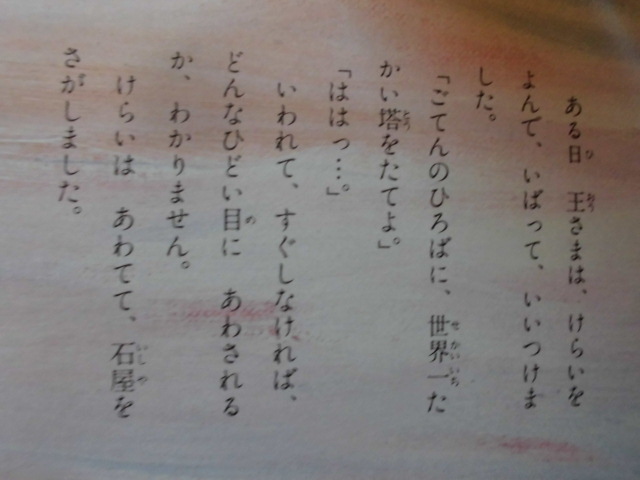 ある日　王さまは、けらいを
よんで、いばって、いいつけま
した。
「ごてんのひろばに、世界一た
かい塔をたてよ。」
「ははっ…。」
いわれて、すぐしなければ、
どんなひどい目に　あわされる
か、わかりません。
けらいは　あわてて、石屋を
さがしました。